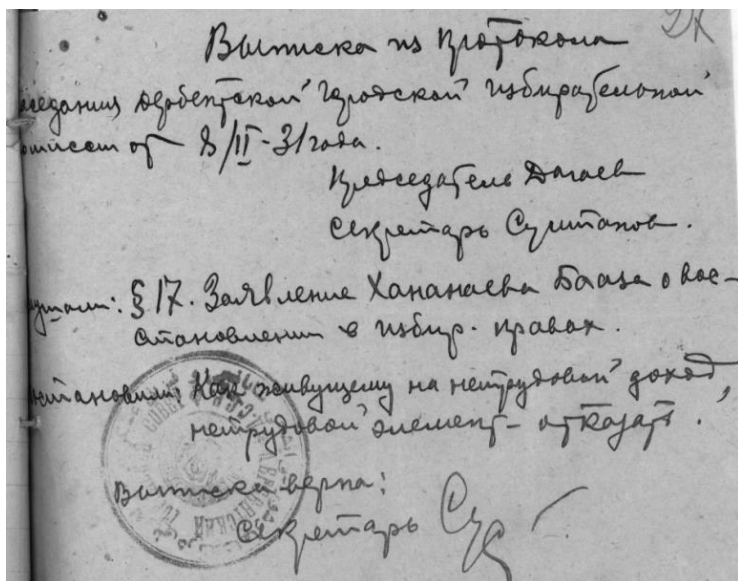 Выписка из протокола
заседания Дербентской городской избирательной
комиссии от 8/II-31 года.
Председатель Дагаев
Секретарь Султанов.
слушали: § 17. Заявление Хананаева Бааза о вос-
становлении в избир. правах.
постановили: Как живущему на нетрудовой доход,
нетрудовой элемент - отказать.
Выписка верна:
Секретарь